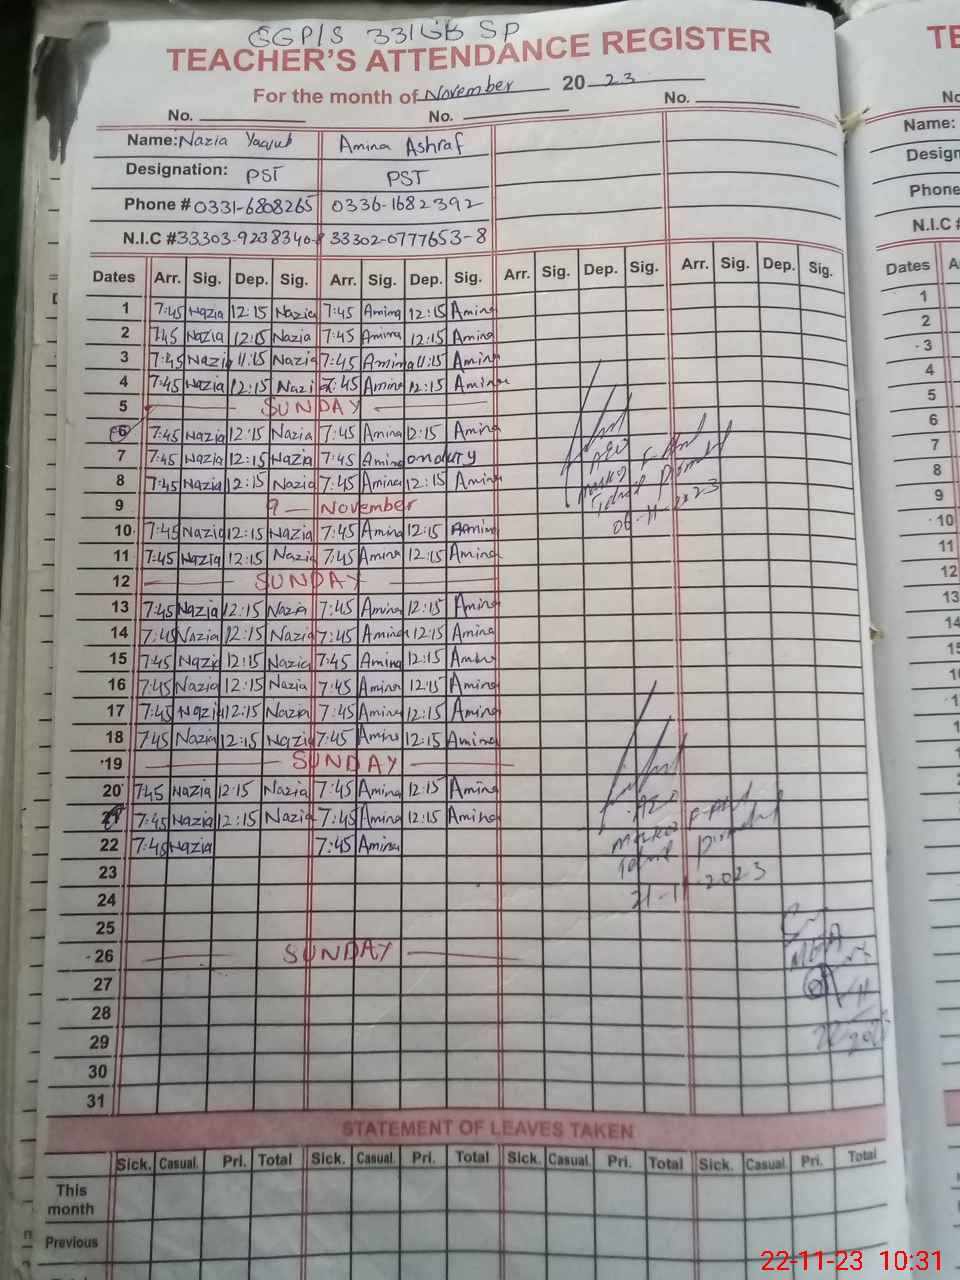 GGP/S 331GB SP
TEACHER'S ATTENDANCE REGISTER
For the month of November 20 23
No. No. No.
Name: Nazia Yaqub Amina Ashraf
Designation: PST PST
Phone # 0331-6808265 0336-1682392
N.I.C # 33303-9238340-8 33302-0777653-8
Dates Arr. Sig. Dep. Sig. Arr. Sig. Dep. Sig. Arr. Sig. Dep. Sig. Arr. Sig. Dep. Sig.
1 7:45 Nazia 12:15 Nazia 7:45 Amina 12:15 Amina
2 7:45 Nazia 12:15 Nazia 7:45 Amina 12:15 Amina
3 7:45 Nazia 11:15 Nazia 7:45 Amina 11:15 Amina
4 7:45 Nazia 12:15 Nazia 7:45 Amina 12:15 Amina
5 SUNDAY
6 7:45 Nazia 12:15 Nazia 7:45 Amina 12:15 Amina
7 7:45 Nazia 12:15 Nazia 7:45 Amina onduty
8 7:45 Nazia 12:15 Nazia 7:45 Amina 12:15 Amina
9 9 — November
10 7:45 Nazia 12:15 Nazia 7:45 Amina 12:15 Amina
11 7:45 Nazia 12:15 Nazia 7:45 Amina 12:15 Amina
12 SUNDAY
13 7:45 Nazia 12:15 Nazia 7:45 Amina 12:15 Amina
14 7:45 Nazia 12:15 Nazia 7:45 Amina 12:15 Amina
15 7:45 Nazia 12:15 Nazia 7:45 Amina 12:15 Amina
16 7:45 Nazia 12:15 Nazia 7:45 Amina 12:15 Amina
17 7:45 Nazia 12:15 Nazia 7:45 Amina 12:15 Amina
18 7:45 Nazia 12:15 Nazia 7:45 Amina 12:15 Amina
19 SUNDAY
20 7:45 Nazia 12:15 Nazia 7:45 Amina 12:15 Amina
21 7:45 Nazia 12:15 Nazia 7:45 Amina 12:15 Amina
22 7:45 Nazia 7:45 Amina
23
24
25
26 SUNDAY
27
28
29
30
31
AEO
06-11-2023
AEO
21-11-2023
STATEMENT OF LEAVES TAKEN
Sick. Casual. Pri. Total Sick. Casual. Pri. Total Sick. Casual. Pri. Total Sick. Casual. Pri. Total
This
month
Previous
TE
No
Name:
Design
Phone
N.I.C #
Dates A
1
2
3
4
5
6
7
8
9
10
11
12
13
14
22-11-23 10:31